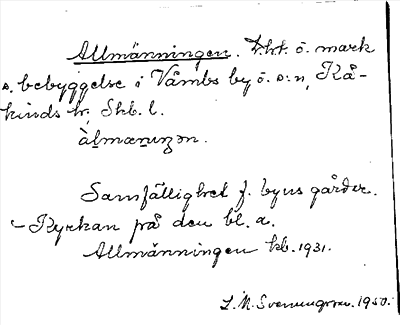 Allmänningen. Trkt ö. mark
o. bebyggelse i Våmbs by o. s:n, Kå-
kinds hd, Skb. l.
àlmænıŋən.
Samfällighet f. byns gårdar.
Kyrkan på den bl. a.
Allmänningen kb. 1931.
L. M. Svenungsson. 1950.